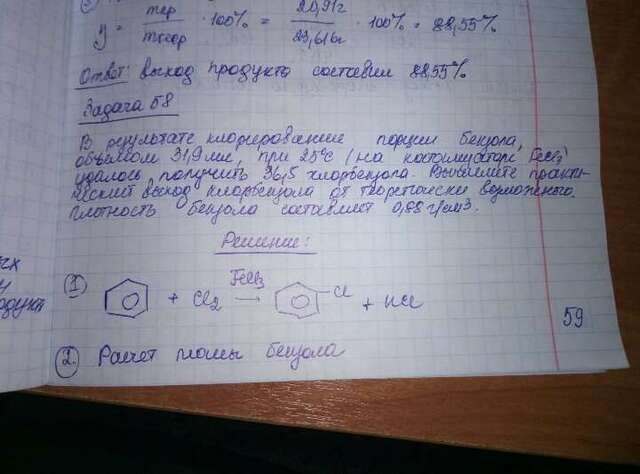 y = mпр / mтеор · 100% = 20,91г / 23,616г · 100% = 88,55%
Ответ: выход продукта составил 88,55%
Задача 58
В результате хлорирование порции бензола,
объёмом 31,9 мл, при 25°C (на катализаторе FeCl3)
удалось получить 36,5 хлорбензола. Вычислите практи-
ческий выход хлорбензола от теоретически возможного.
Плотность бензола составляет 0,88 г/см³.
Решение:
1 + Cl2 FeCl3 → Cl + HCl
2. Расчет массы бензола
59